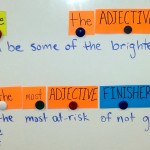 the ADJECTIVE
be some of the brighte
the most ADJECTIVE FINISHER
the most at-risk of not g